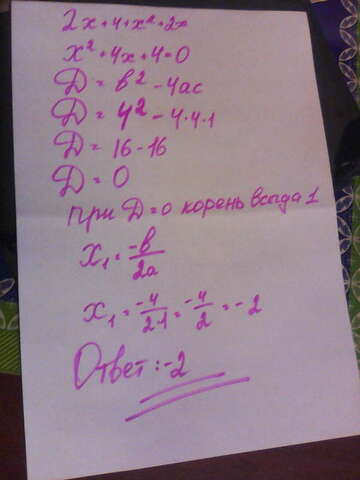 2x+4+x²+2x
x²+4x+4=0
D = b² - 4ac
D = 4² - 4·4·1
D = 16 - 16
D = 0
при D=0 корень всегда 1
x₁ = -b/2a
x₁ = -4/2·1 = -4/2 = -2
Ответ: -2